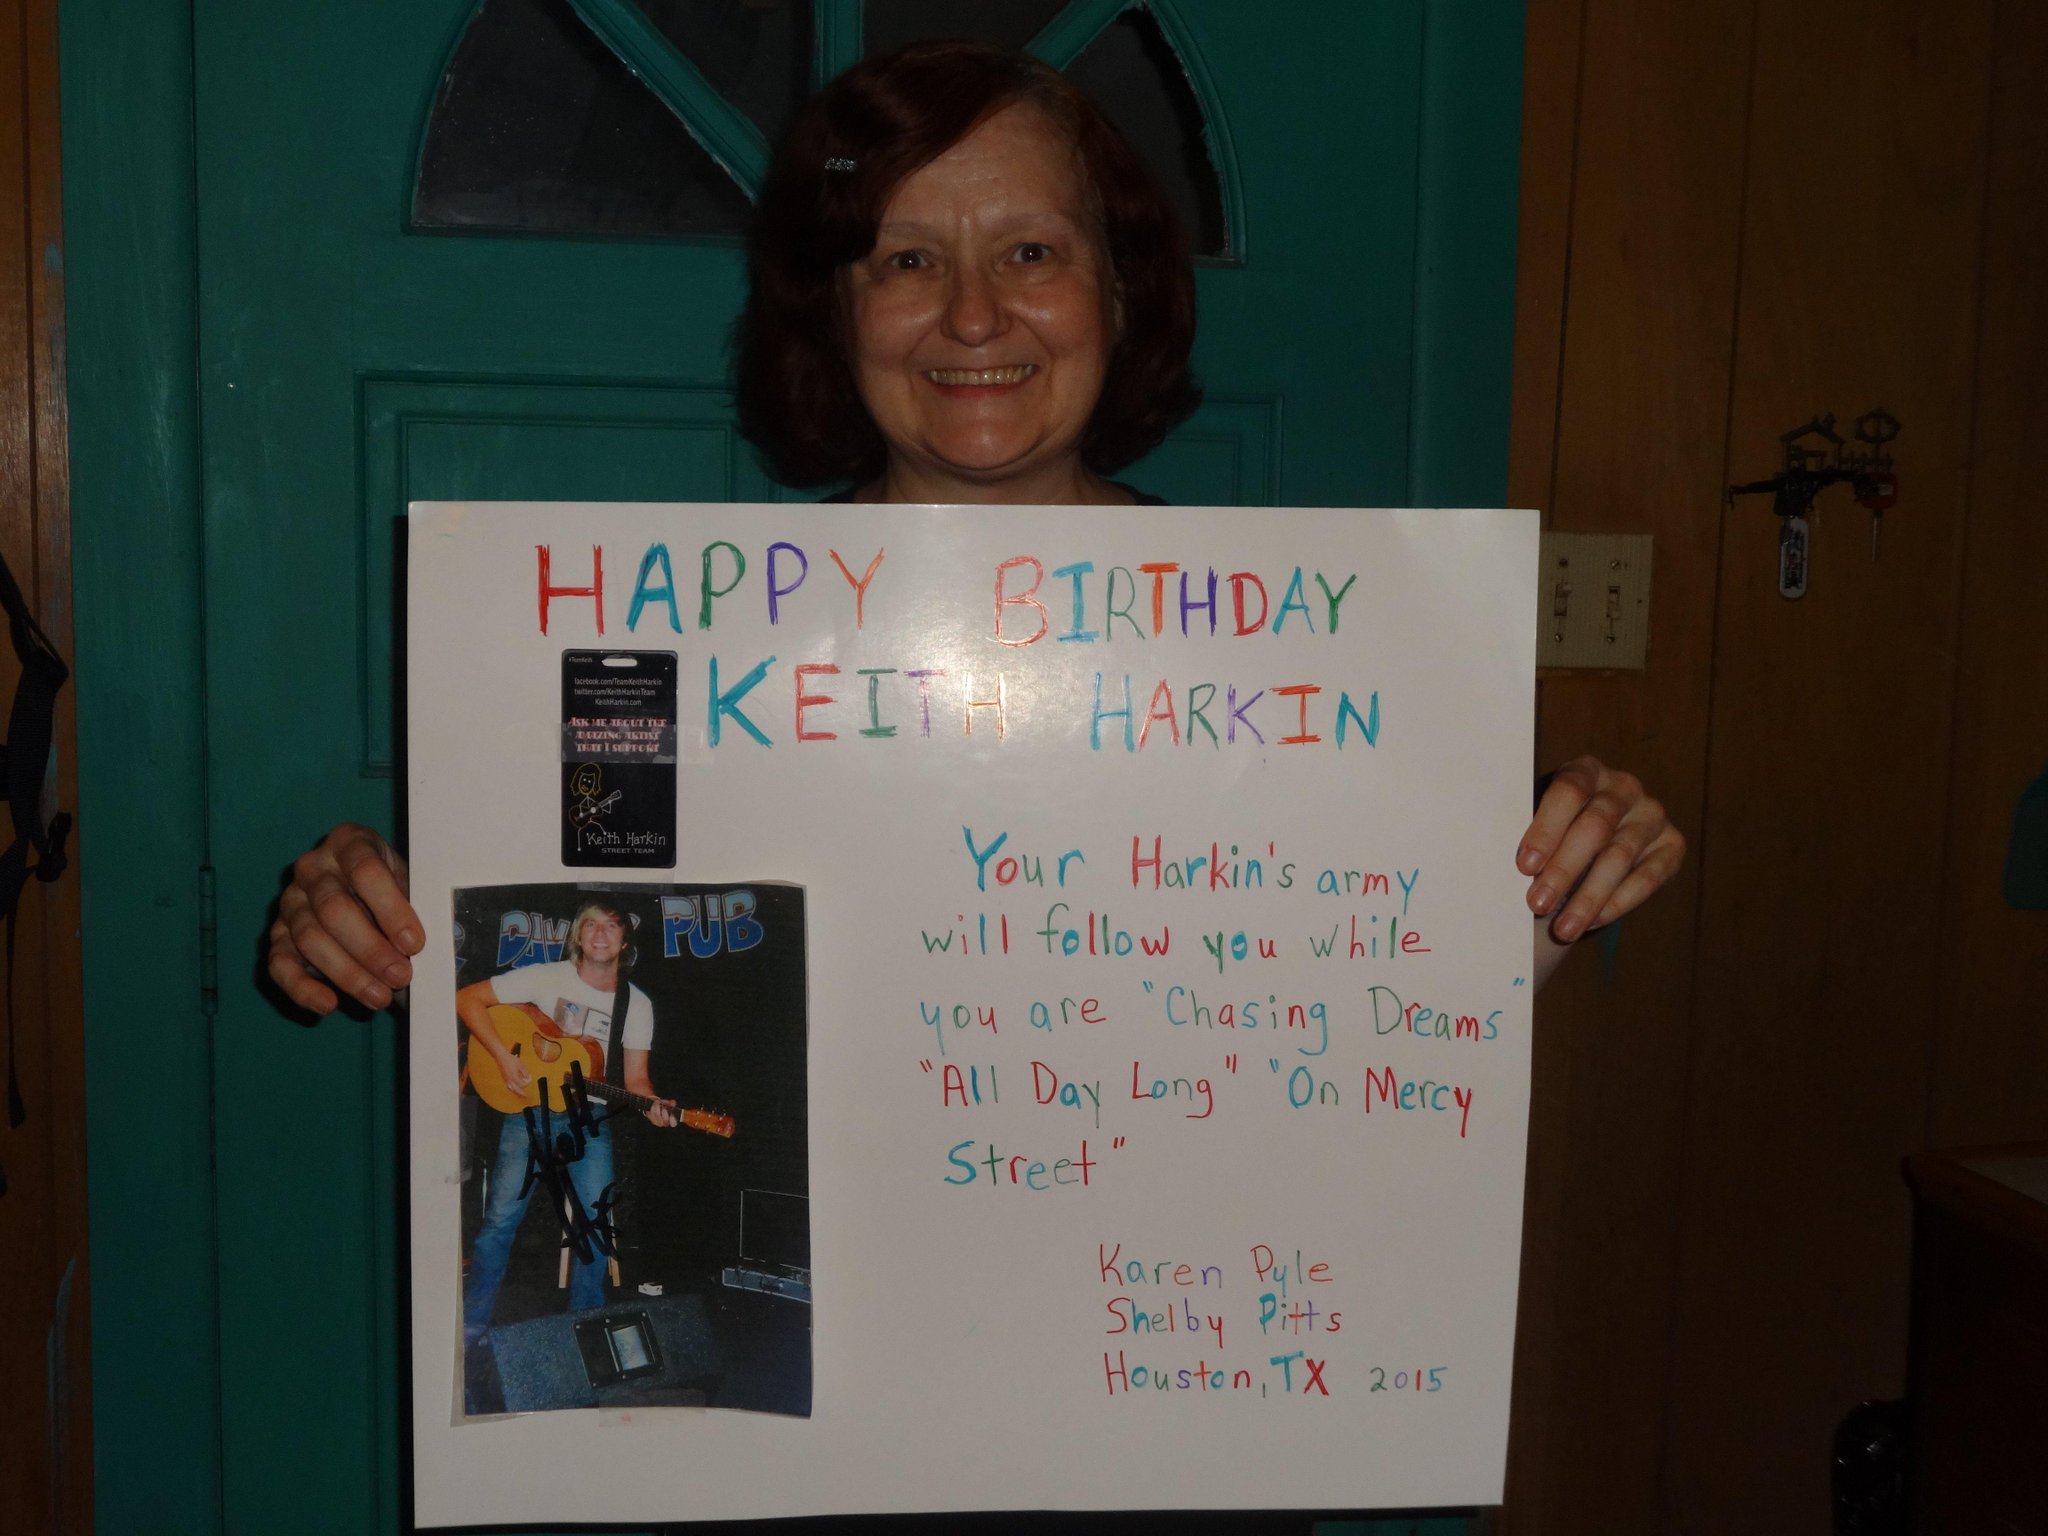 HAPPY BIRTHDAY
KEITH HARKIN
#TeamKeith
facebook.com/TeamKeithHarkin
twitter.com/KeithHarkinTeam
KeithHarkin.com
ASK ME ABOUT THE
AMAZING ARTIST
THAT I SUPPORT
Keith Harkin
STREET TEAM
PUB
Your Harkin's army
will follow you while
you are "Chasing Dreams"
"All Day Long" "On Mercy
Street"
Karen Pyle
Shelby Pitts
Houston, TX 2015